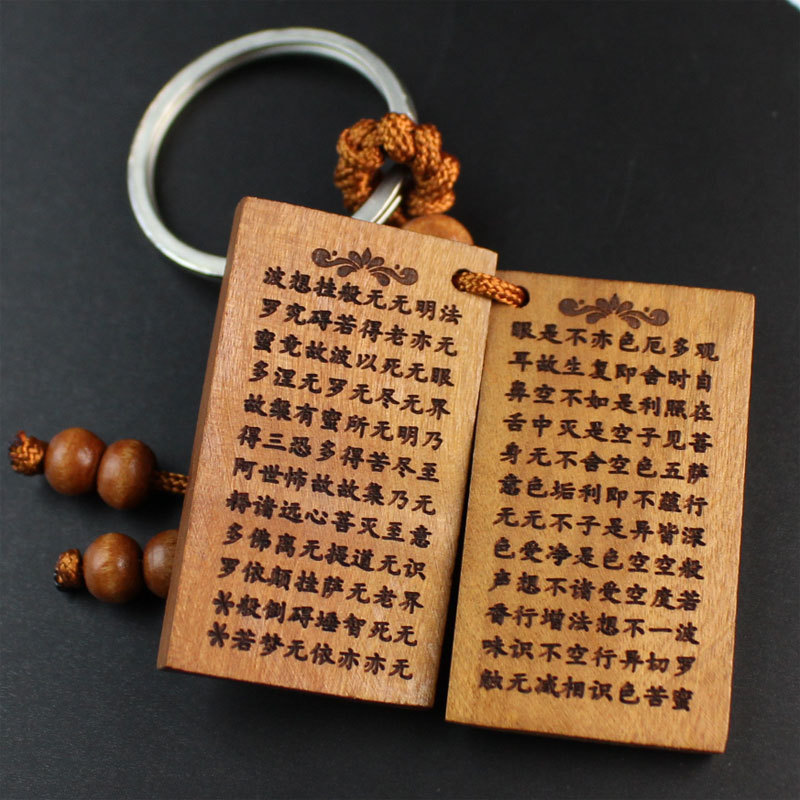 观自在菩萨行深般若波罗蜜
多时照见五蕴皆空度一切苦
厄舍利子色不异空空不异色
色即是空空即是色受想行识
亦复如是舍利子是诸法空相
不生不灭不垢不净不增不减
是故空中无色无受想行识无
眼耳鼻舌身意无色声香味触
法无眼界乃至无意识界无无
明亦无无明尽乃至无老死亦
无老死尽无苦集灭道无智亦
无得以无所得故菩提萨埵依
般若波罗蜜多故心无挂碍无
挂碍故无有恐怖远离颠倒梦
想究竟涅槃三世诸佛依般若
波罗蜜多故得阿耨多罗※※